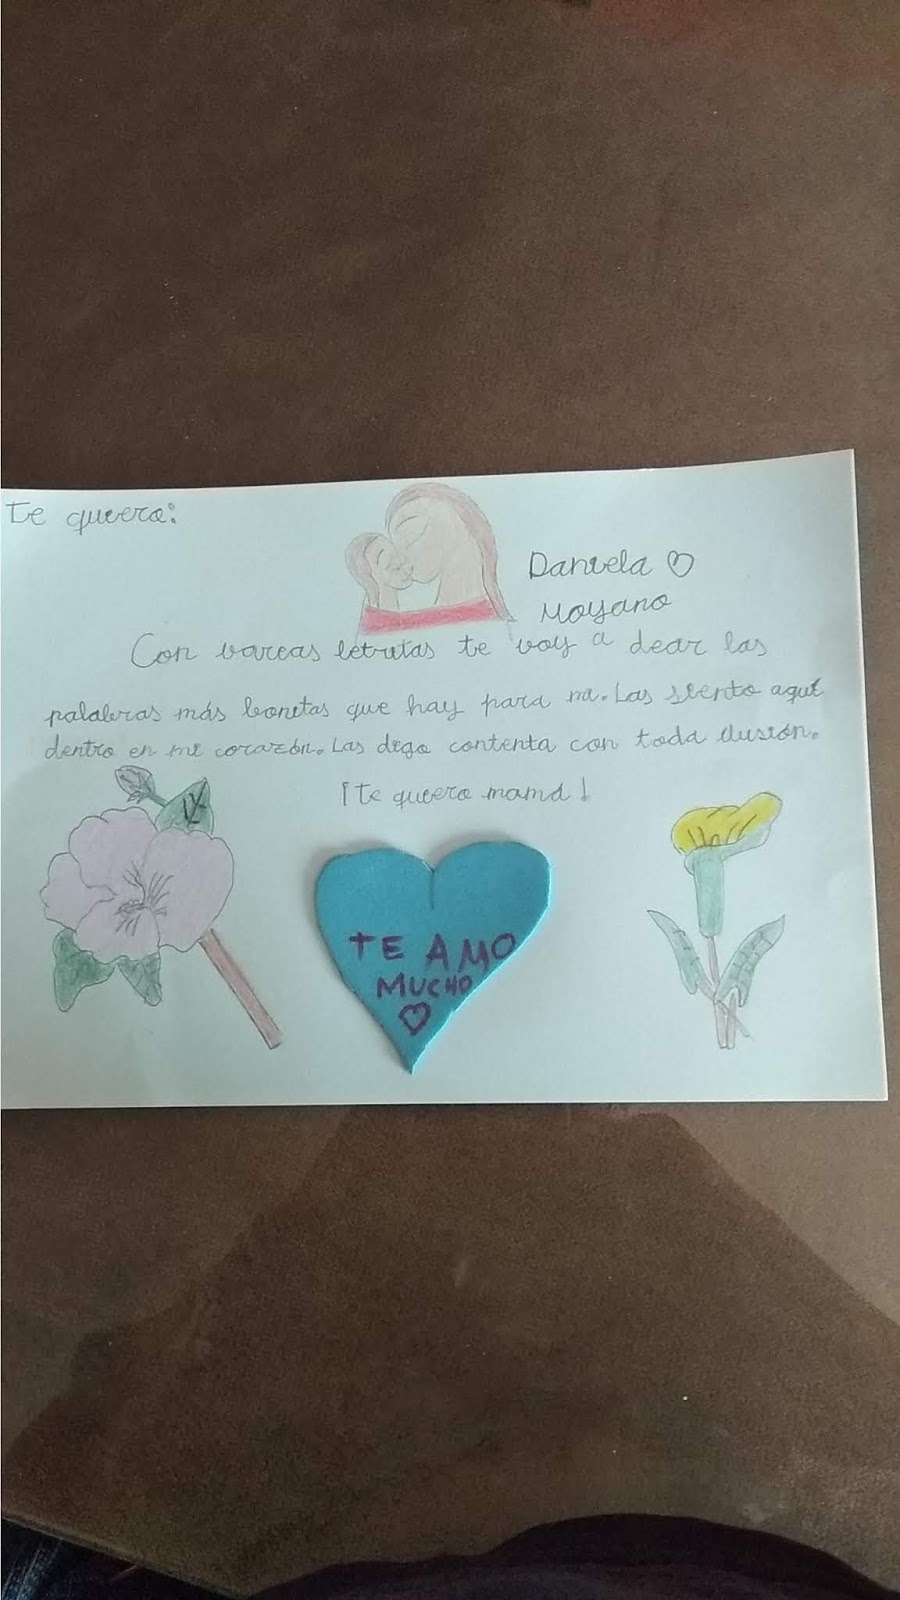 Te quiero:
Daniela ♡
Moyano
Con varias letritas te voy a decir las
palabras más bonitas que hay para mi. Las siento aquí
dentro en mi corazón. Las digo contenta con toda ilusión.
¡Te quiero mamá!
TE AMO
MUCHO
♡